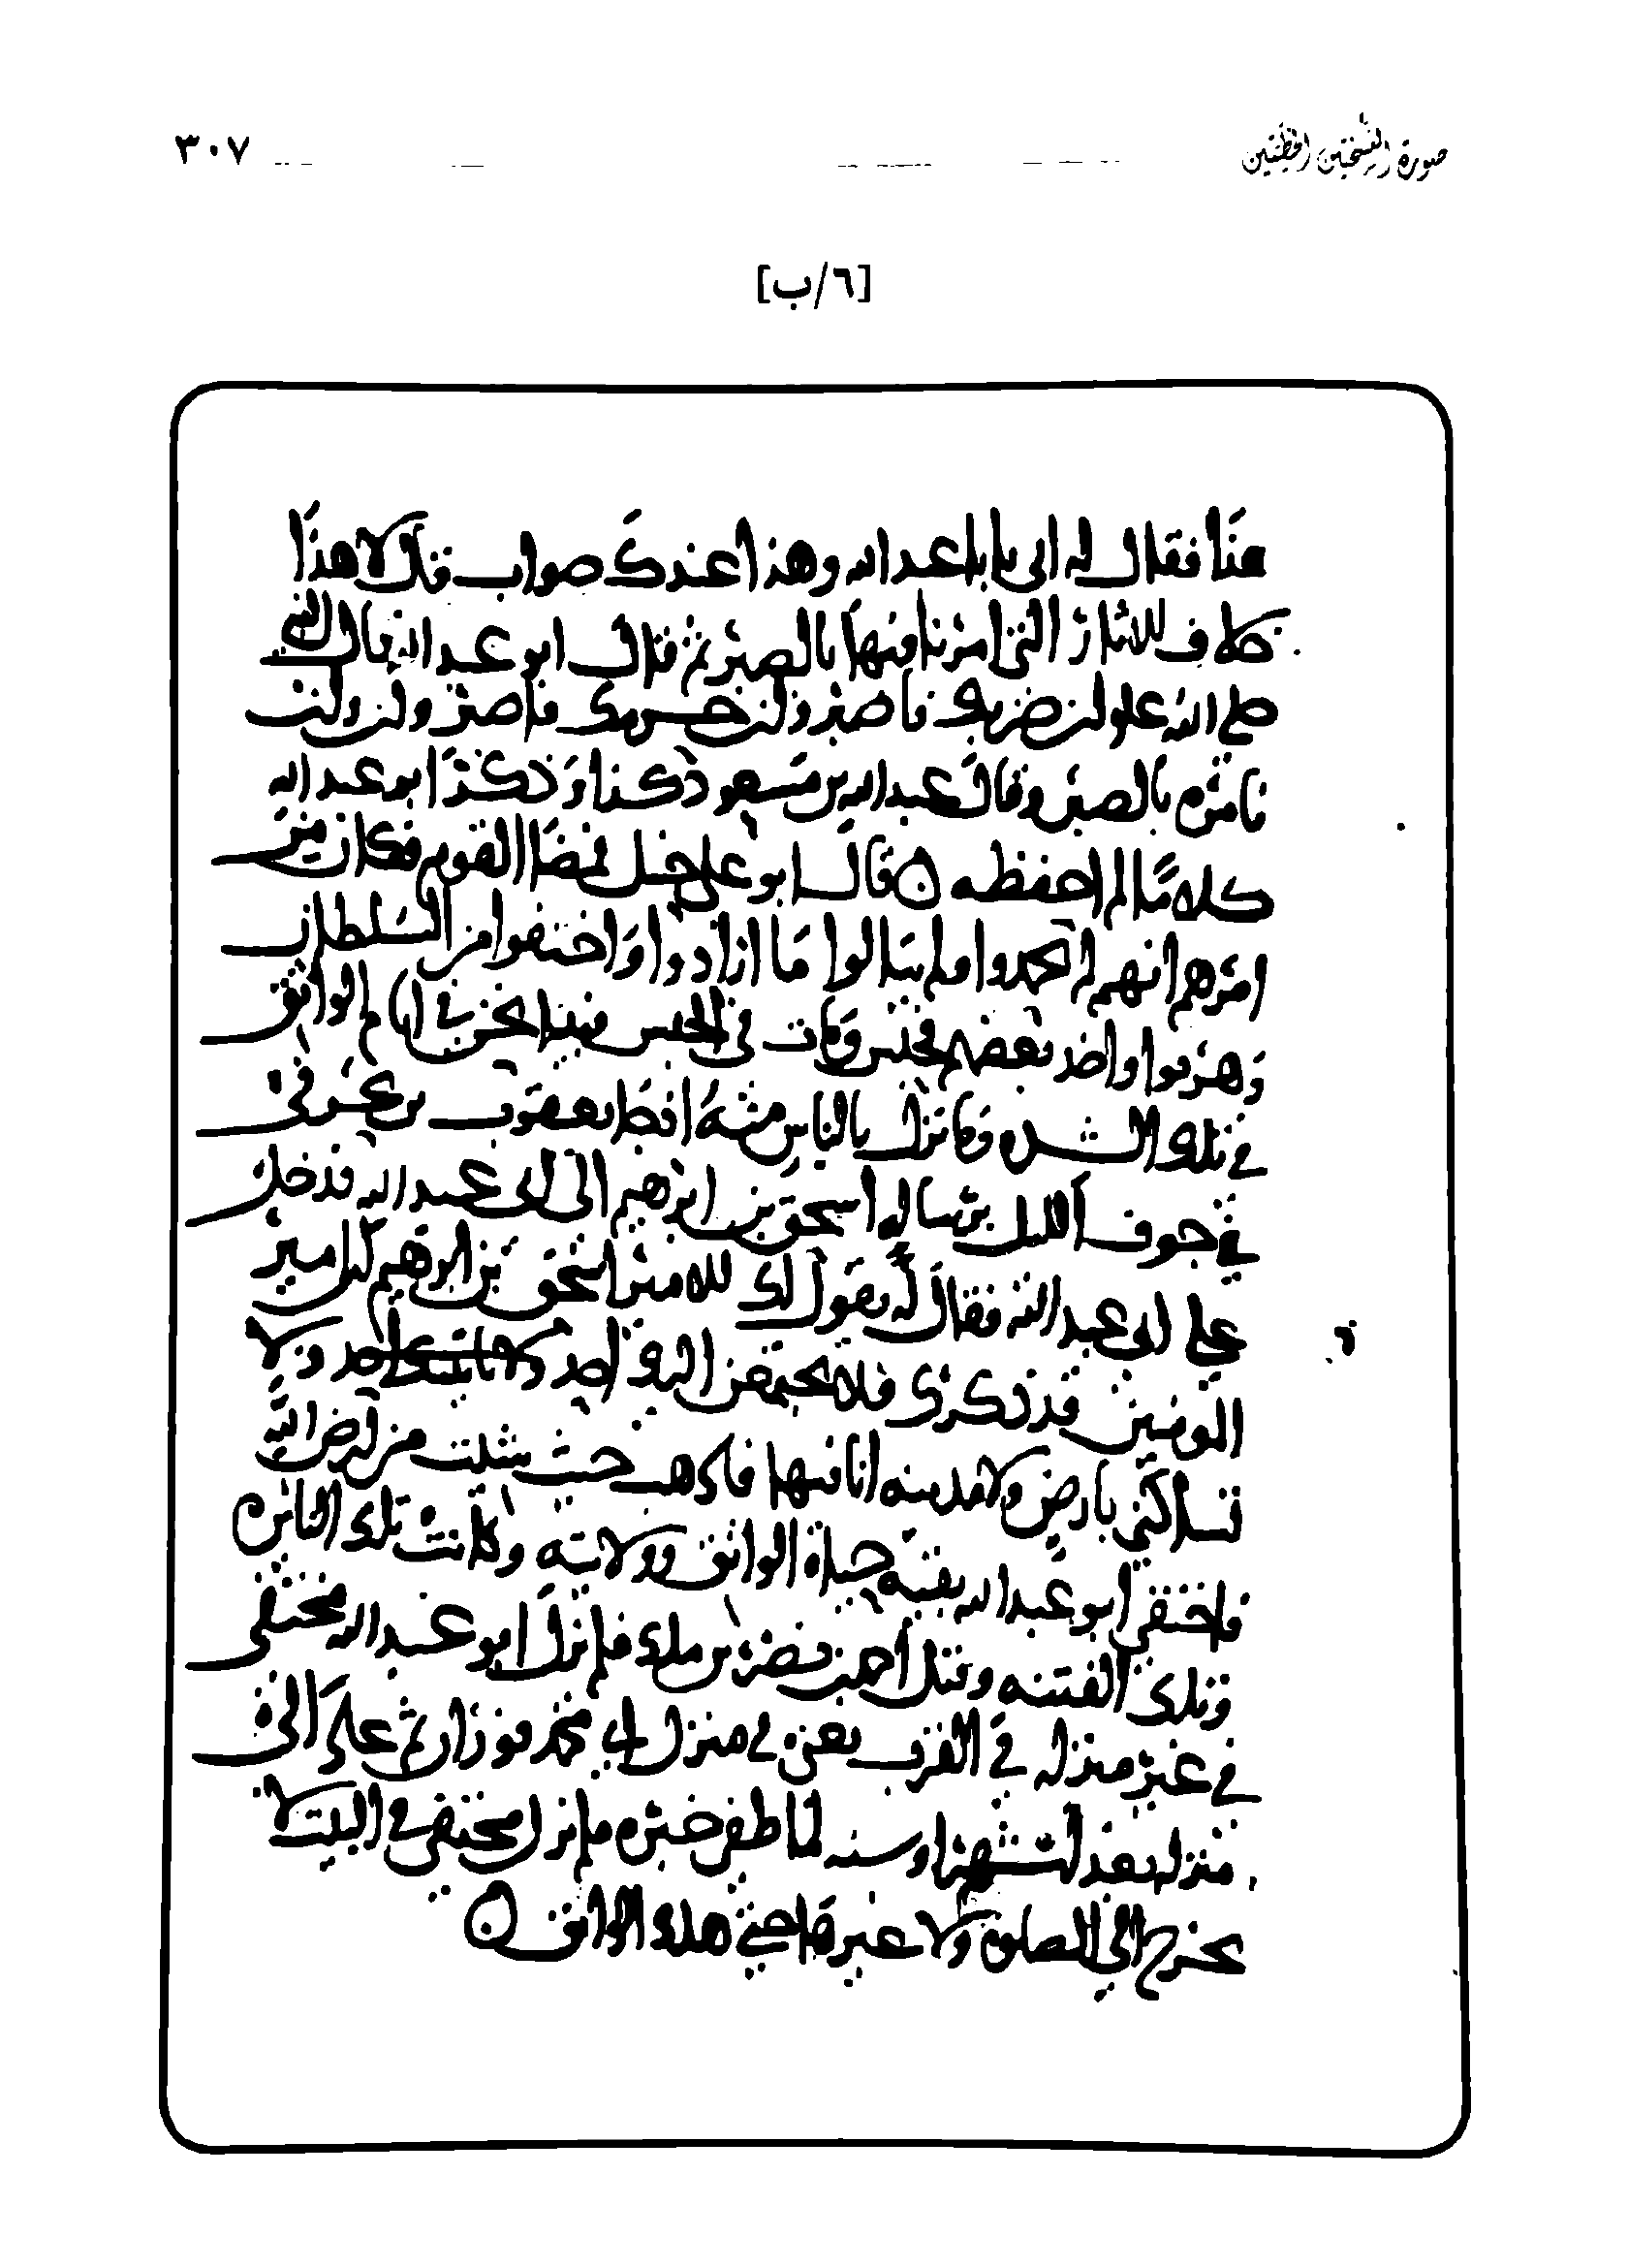 صورة النسختين الخطيتين
٣٠٧
[٦/ب]
هذا فقال له ابى يابا عبد الله وهذا عندك صواب قال لا هذا
خلاف للاثار التى امرنا فيها بالصبر ثم قال ابو عبد الله قال النبى
صلى الله عليه ان ضربك فاصبر وان حرمك فاصبر وان وليت
فامره بالصبر وقال عبد الله بن مسعود كذا وذكر ابو عبد الله
كلاما لم احفظه ۞ قال ابو على حنبل فمضا القوم فكان من
امرهم انهم لم يحمدوا ولم ينالوا ما ارادوا واختفوا من السلطان
وهربوا واخذ بعضهم فحبس ومات فى الحبس فبينا نحن فى ايام الواثق
فى تلك الشده وما نزل بالناس منه اذ جا يعقوب بن بحر فى
فى جوف الليل برسالة اسحق بن ابرهيم الى ابى عبد الله فدخل
على ابى عبد الله فقال له يقول لك الامير اسحق بن ابرهيم ان امير
المومنين قد ذكرك فلا يجتمعن اليك احد ولا
تساكنى بارض ولا مدينه انا فيها فاذهب حيث شئت من ارض الله
فاختفى ابو عبد الله بقية حياة الواثق وولايته وكانت تلك النائره
وتلك الفتنه وقتل احمد بن نصر بن ملك فلم يزل ابو عبد الله مختفى
فى غير منزله فى القرب يعنى فى منزل ابى محمد فوزان ثم عاد الى
منزله بعد اشهر او سنه لما طفى خبره ولم يزل مختفى فى البيت لا
يخرج الى الصلوه ولا غيرها حتى هلك الواثق ۞